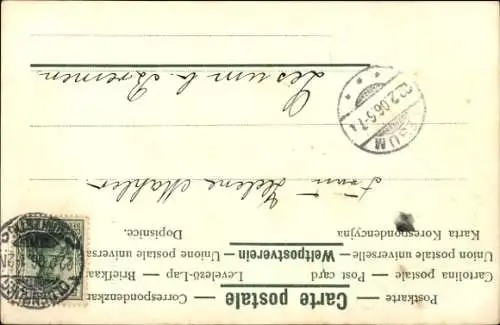 Carte postale
Postkarte — Correspondenzkar
Cartolina postale — Post card — Levelező-Lap — Briefkaar
Union postale universelle — Weltpostverein — Unione postale universa
Karta Korespondencyjna
Dopisnice.
Frau Helene Mahler
Lesum b. Bremen
LESUM
22.2.06.5-7N.